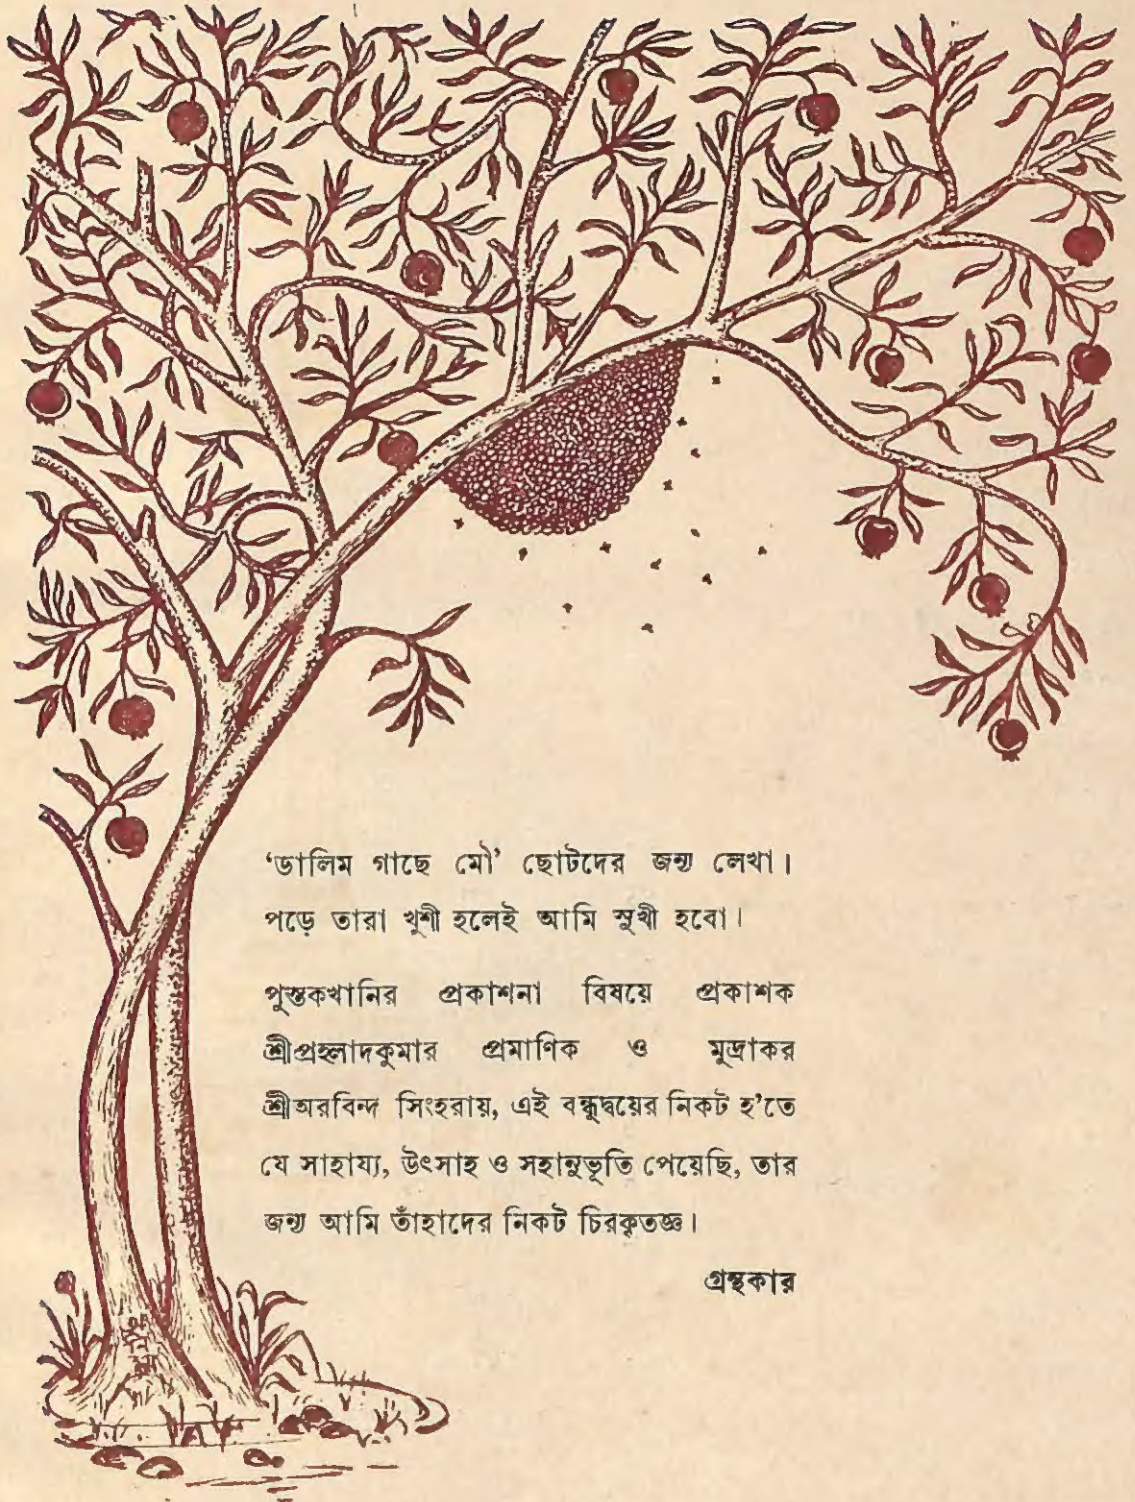 ‘ডালিম গাছে মৌ’ ছোটদের জন্য লেখা।
পড়ে তারা খুশী হলেই আমি সুখী হবো।
পুস্তকখানির প্রকাশনা বিষয়ে প্রকাশক
শ্রীপ্রহ্লাদকুমার প্রমাণিক ও মুদ্রাকর
শ্রীঅরবিন্দ সিংহরায়, এই বন্ধুদ্বয়ের নিকট হ’তে
যে সাহায্য, উৎসাহ ও সহানুভূতি পেয়েছি, তার
জন্য আমি তাঁহাদের নিকট চিরকৃতজ্ঞ।
গ্রন্থকার